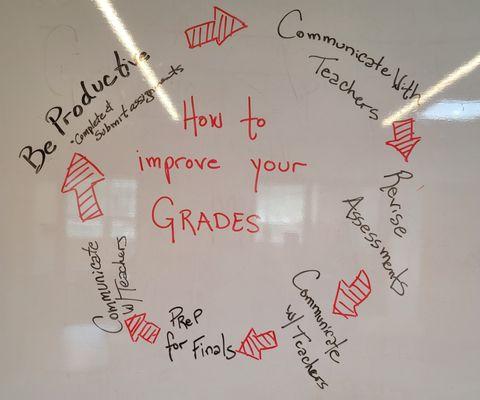 How to
improve your
GRADES
Be Productive
• Complete &
Submit assignments
Communicate With
Teachers
Revise
Assessments
Communicate
w/ Teachers
PReP
for Finals
Communicate
w/ Teachers